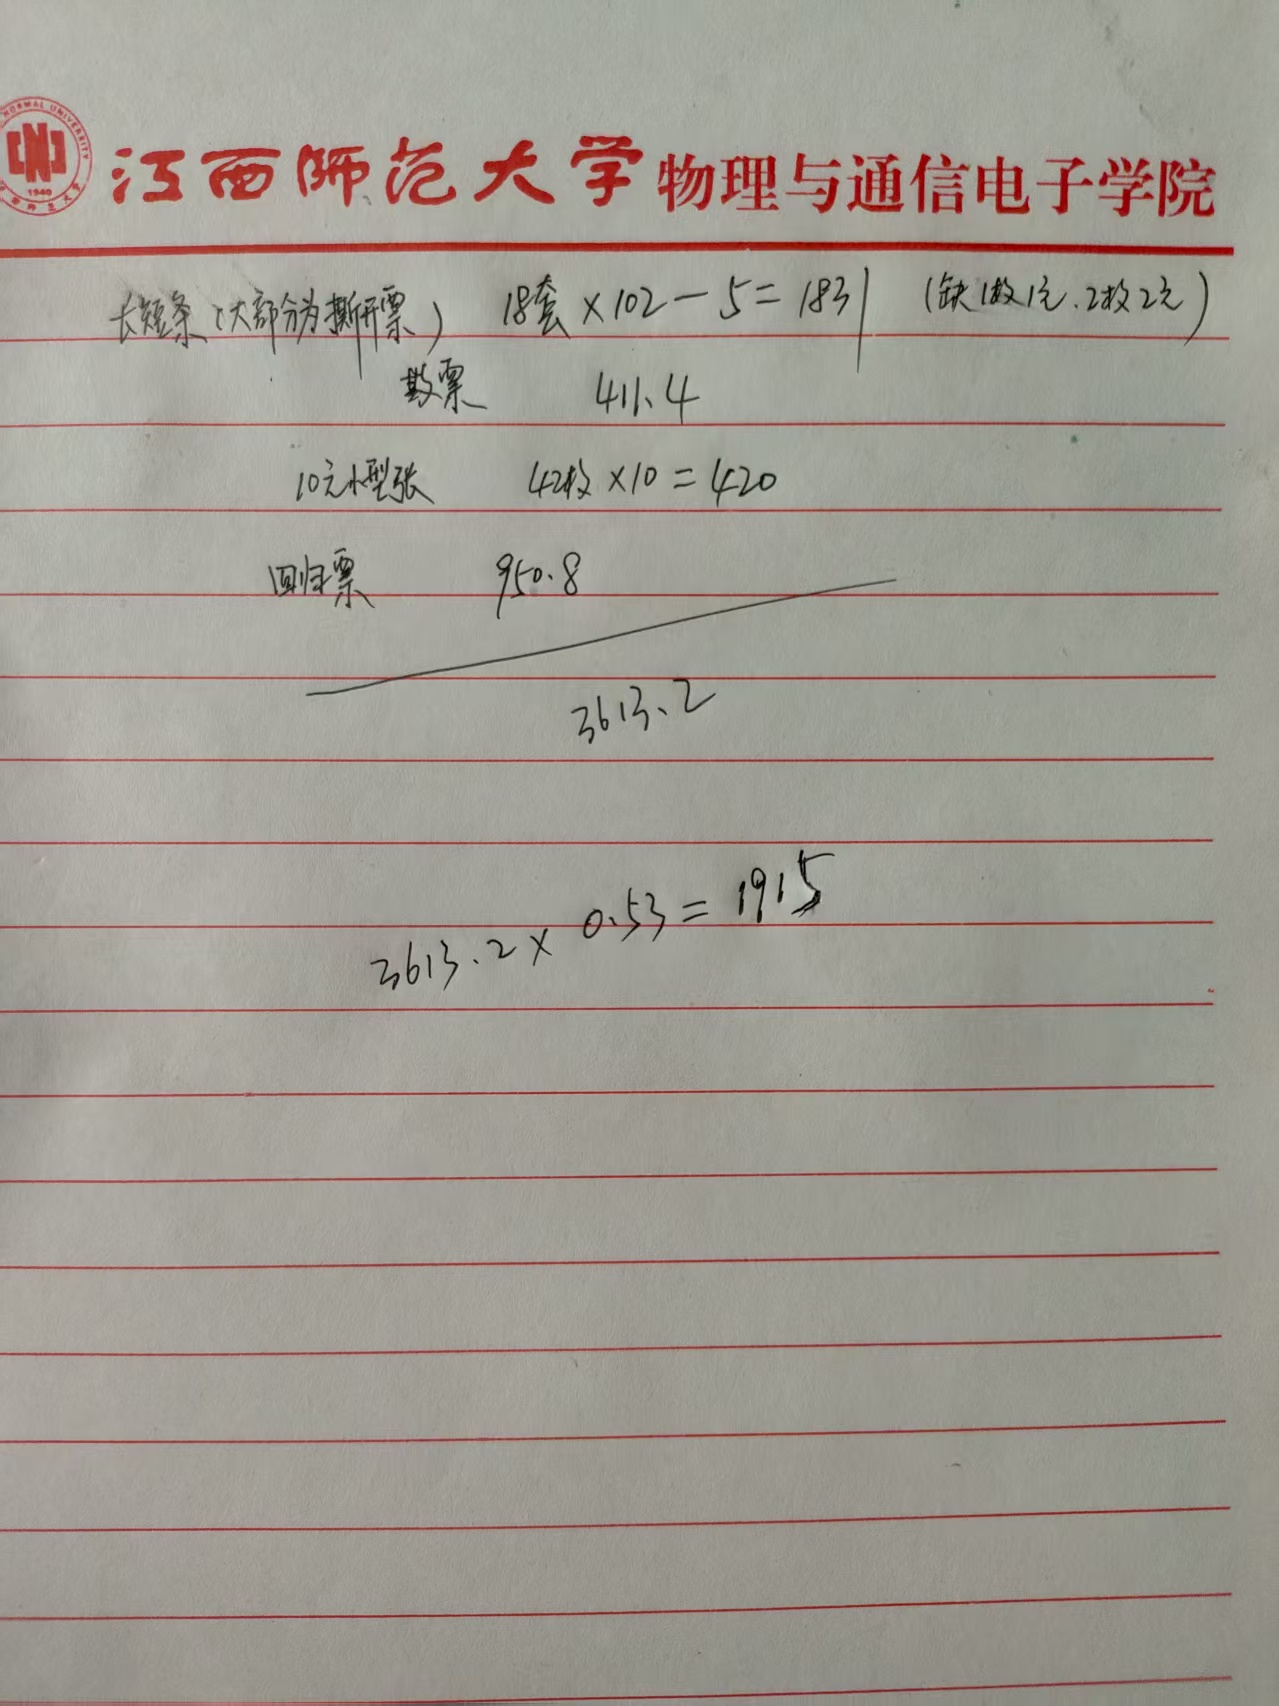 NORMAL UNIVERSITY
1940
江西师范大学 物理与通信电子学院
长短条（大部分为撕开票） 18套×102－5＝1831 （缺1枚1元、2枚2元）
散票 411.4
10元小型张 42枚×10＝420
回归票 950.8
3613.2
3613.2×0.53＝1915